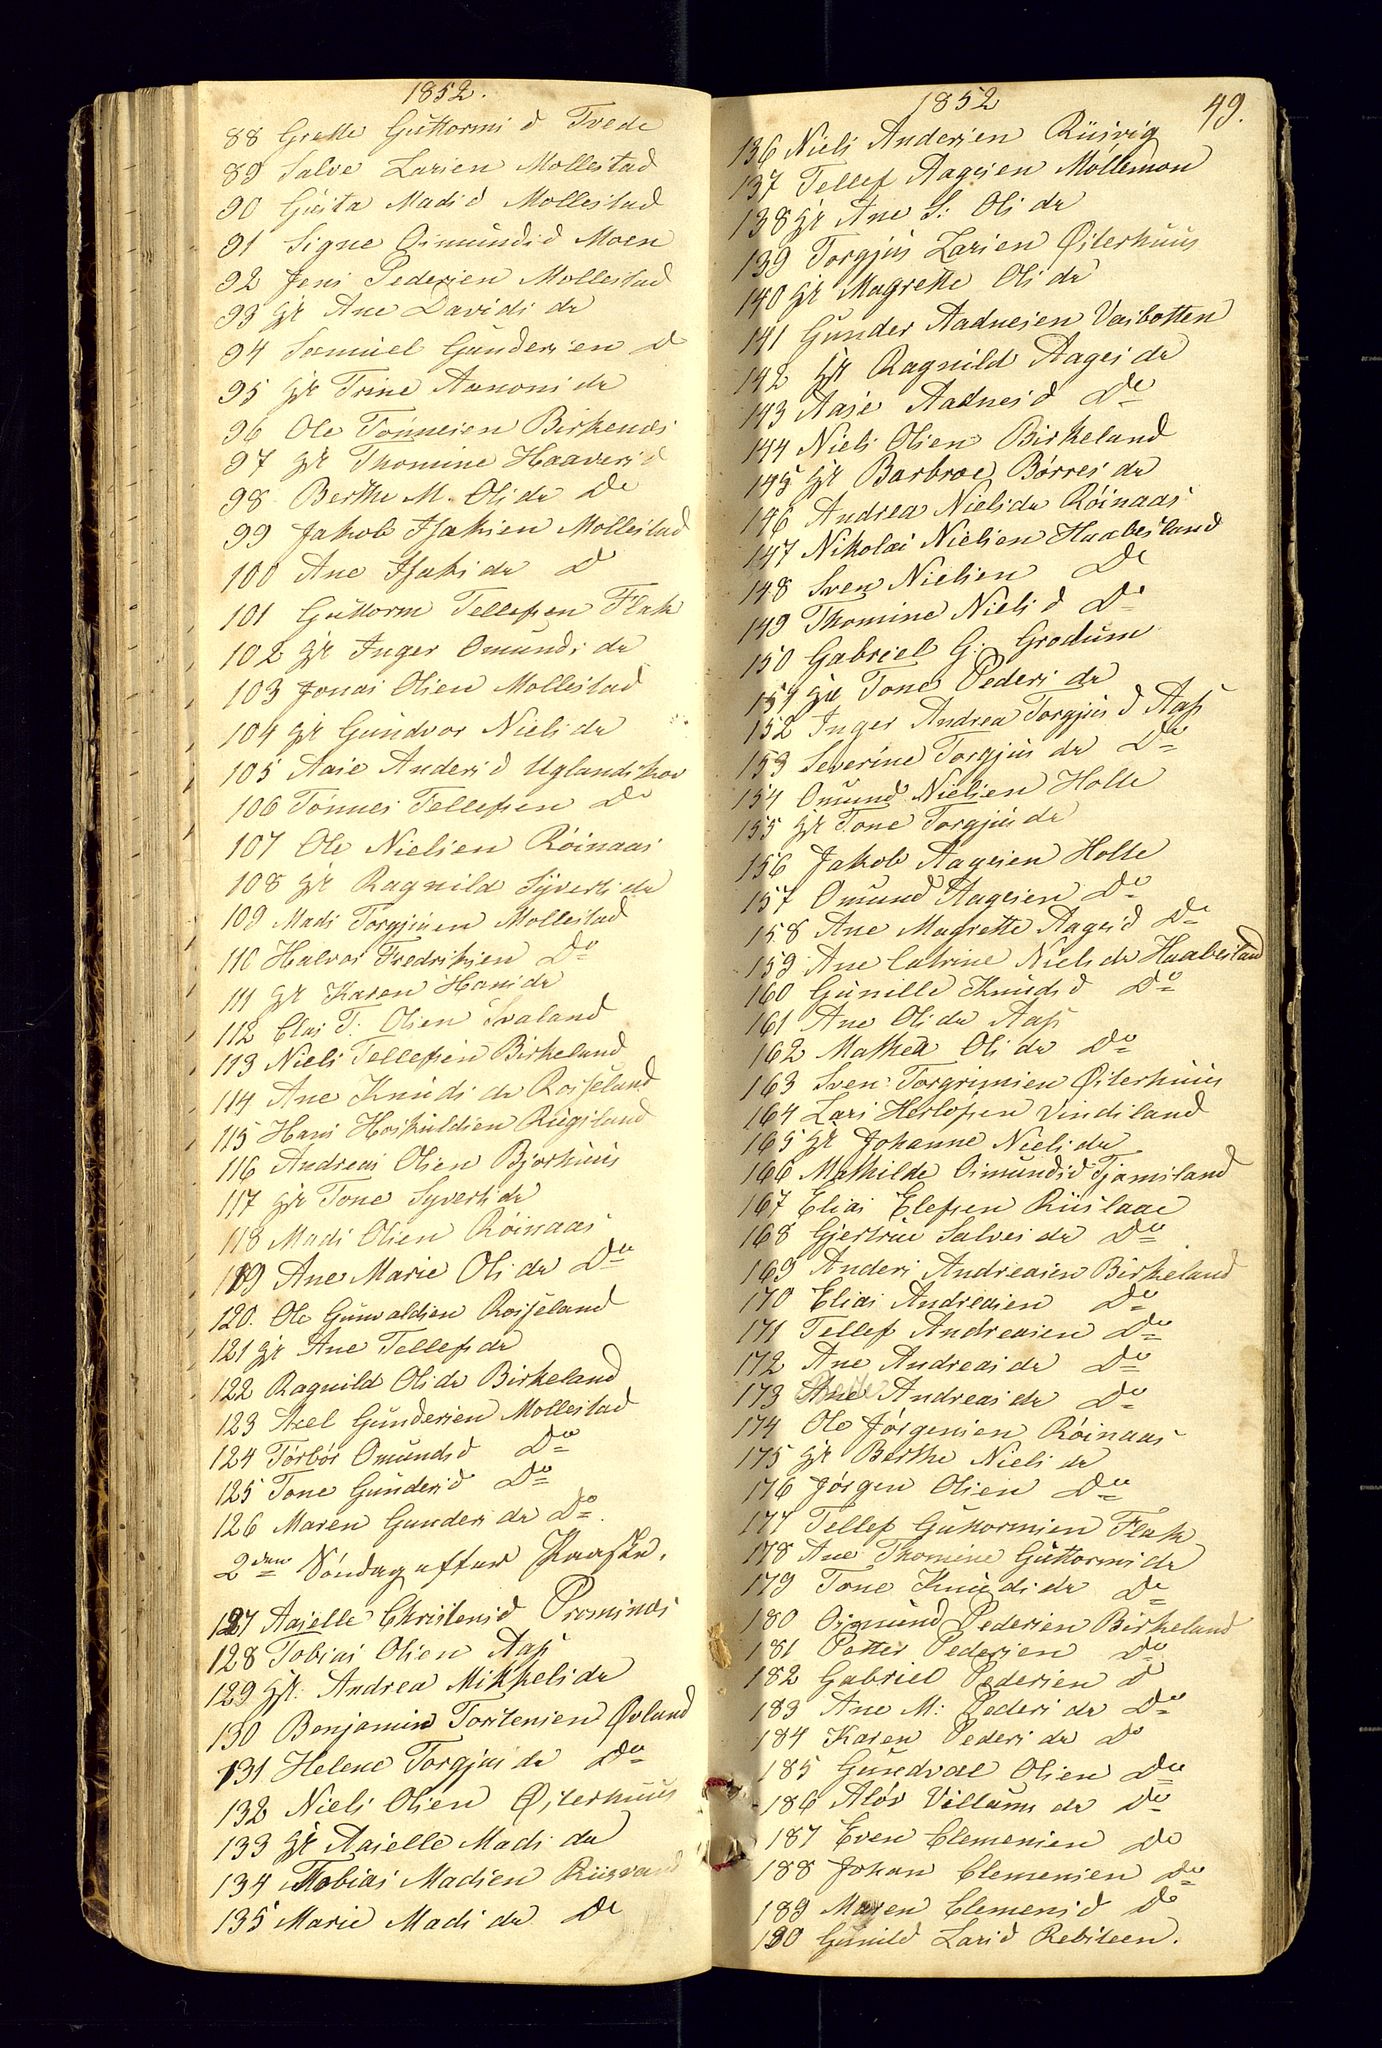 1852.
88 Grethe Guttorms d Tvede
89 Salve Larsen Mollestad
90 Gusta Mads d Mollestad
91 Signe Osmunds d Moen
92 Jens Pedersen Mollestad
93 hr Ane Davids dr
94 Samuel Gundersen D
95 hr Trine Aanons dr
96 Ole Tønnesen Birkenæs
97 hr Thomine Haavers d
98 Berthe M. Ols dr Do
99 Jakob Isaksen Mollestad
100 Ane Isaks dr D
101 Guttorm Tellefsen Flak
102 hr Inger Omunds dr
103 Jonas Olsen Mollestad
104 hr Gundvor Niels dr
105 Aase Anders d Uglandskov
106 Tønnes Tellefsen Do
107 Ole Nielsen Röinaas
108 hr Ragnild Syverts dr
109 Mads Torgjusen Mollestad
110 Halvor Fredriksen Do
111 hr Karen Hans dr
112 Clas T. Olsen Svaland
113 Niels Tellefsen Birkeland
114 Ane Knuds dr Rosseland
115 Hans Hoskuldsen Rugsland
116 Andreas Olsen Bjorhuus
117 hr Tone Syverts dr
118 Mads Olsen Röinaas
119 Ane Marie Ols dr Do
120. Ole Gunvaldsen Rosseland
121 hr Ane Tellefs dr
122 Ragnild Ols dr Birkeland
123 Axel Gundersen Mollestad
124 Torbör Omunds d Do
125 Tone Gunders d Do
126 Maren Gunders dr Do.
2den Søndag efter Paaske.
127 Aaselle Christens d Promsnæs
128 Tobias Olsen Aas
129 hr. Andrea Mikkels dr
130 Benjamin Torstensen Øvland
131 Helene Torgjus dr Do
132 Niels Olsen Østerhuus
133 hr Aaselle Mads dr
134 Tobias Madsen Riisvand
135 Marie Mads dr Do
1852 49.
136 Niels Andersen Riisvig
137 Tellef Aagesen Möllemon
138 hr Ane S: Ols dr
139 Torgjus Larsen Østerhuus
140 hr Magrethe Ols dr
141 Gunder Aadnesen Vasbotten
142 hr Ragnild Aages dr
143 Aase Aadnes d Do
144 Niels Olsen Birkeland
145 hr Barbroe Börres dr
146 Andrea Niels dr Röinaas
147 Nikolai Nielsen Haabesland
148 Sven Nielsen Do
149 Thomine Niels d Do
150 Gabriel G: Grodum
151 hr Tone Peders dr
152 Inger Andrea Torgjus d Aas
153 Severine Torgjus dr Do
154 Omund Nielsen Holte
155 hr Tone Torgjus dr
156 Jakob Aagesen Holte
157 Omund Aagesen Do
158 Ane Magrethe Aages d Do
159 Ane Catrine Niels dr Haabesland
160 Gunille Knuds d Do
161 Ane Ols dr Aas
162 Mathea Ols dr Do
163 Sven Torgrimsen Østerhuus
164 Lars Herlofsen Vindsland
165 hr Johanne Niels dr
166 Mathilde Osmunds d Tjamsland
167 Elias Elefsen Riislaae
168 Gjertrue Salves dr Do
169 Anders Andreasen Birkeland
170 Elias Andreasen Do
171 Tellef Andreasen Do
172 Ane Andreas dr Do
173 Andreas dr Do
174 Ole Jörgensen Röinaas
175 hr Berthe Niels dr
176 Jörgen Olsen Do
177 Tellef Guttormsen Flak
178 Ane Thomine Guttorms dr
179 Tone Knuds dr Do
180 Osmund Pedersen Birkeland
181 Petter Pedersen Do
182 Gabriel Pedersen D
183 Ane M: Peders dr Do
184 Karen Peders dr Do
185 Gundvae Olsen Do
186 Alöv Villums dr Do
187 Even Clemensen Do
188 Johan Clemensen Do
189 Maren Clemens d Do
190 Gunild Lars d Rebsteen.